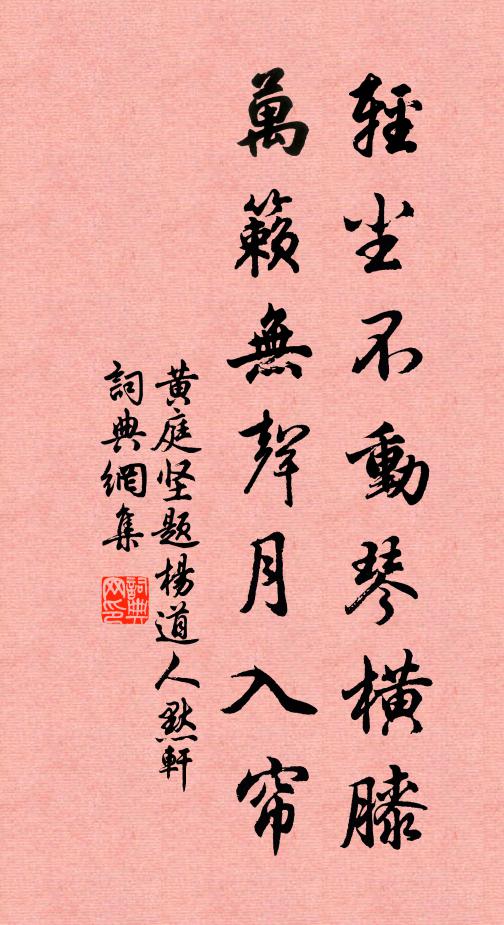 輕尘不動琴橫膝
萬籟無聲月入帘
黃庭坚題楊道人默軒
詞典網集
詞典网印